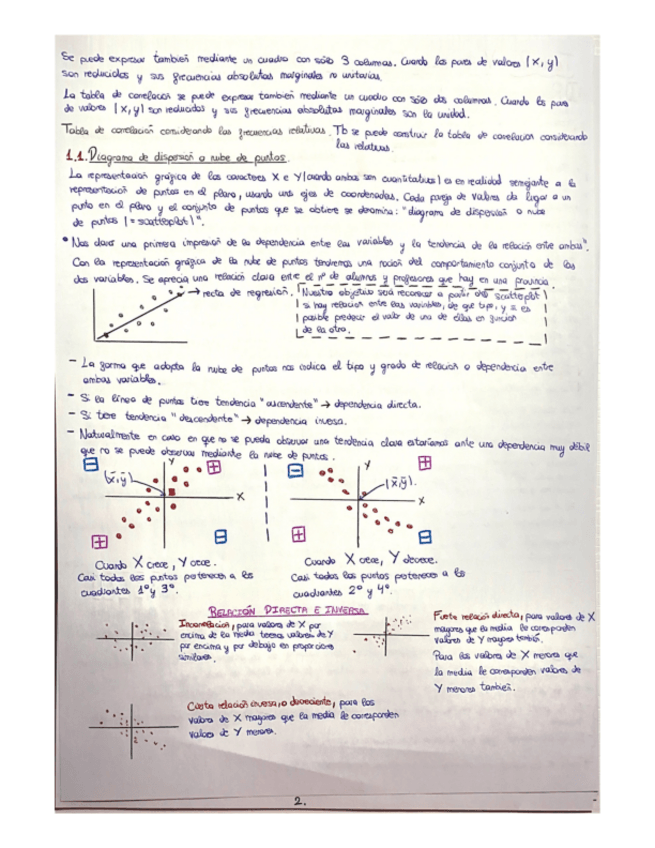 Se puede expresar también mediante un cuadro con sólo 3 columnas. Cuando los pares de valores (x, y)
son reducidos y sus frecuencias absolutas marginales no unitarias.
La tabla de correlación se puede expresar también mediante un cuadro con sólo dos columnas. Cuando los pares
de valores (x,y) son reducidos y sus frecuencias absolutas marginales son la unidad.
Tabla de correlación considerando las frecuencias relativas. Tb se puede construir la tabla de correlación considerando
las relativas.
1.1. Diagrama de dispersión o nube de puntos.
La representación gráfica de los caracteres X e Y (cuando ambos son cuantitativos) es en realidad semejante a la
representación de puntos en el plano, usando unos ejes de coordenadas. Cada pareja de valores da lugar a un
punto en el plano y el conjunto de puntos que se obtiene se denomina: "diagrama de dispersión o nube
de puntos (= scatterplot)".
• Nos dará una primera impresión de la dependencia entre las variables y la tendencia de la relación entre ambas".
Con la representación gráfica de la nube de puntos tendremos una noción del comportamiento conjunto de las
dos variables. Se aprecia una relación clara entre el nº de alumnos y profesores que hay en una provincia.
→ recta de regresión.
Nuestro objetivo será reconocer a partir del scatterplot
si hay relación entre las variables, de qué tipo, y si es
posible predecir el valor de una de ellas en función
de la otra.
- La forma que adopta la nube de puntos nos indica el tipo y grado de relación o dependencia entre
ambas variables.
- Si la línea de puntos tiene tendencia "ascendente" → dependencia directa.
- Si tiene tendencia "descendente" → dependencia inversa.
- Naturalmente en caso en que no se pueda observar una tendencia clara estaríamos ante una dependencia muy débil
que no se puede observar mediante la nube de puntos.
- Y +
(x̄,ȳ)
X
+ -
- Y +
(x̄,ȳ).
X
+ -
Cuando X crece, Y crece.
Casi todos los puntos pertenecen a los
cuadrantes 1º y 3º.
Cuando X crece, Y decrece.
Casi todos los puntos pertenecen a los
cuadrantes 2º y 4º.
RELACIÓN DIRECTA E INVERSA
Incorrelación, para valores de X por
encima de la media tenemos valores de Y
por encima y por debajo en proporciones
similares.
Fuerte relación directa, para valores de X
mayores que la media le corresponden
valores de Y mayores también.
Para los valores de X menores que
la media le corresponden valores de
Y menores también.
Cierta relación inversa, o decreciente, para los
valores de X mayores que la media le corresponden
valores de Y menores.
2.